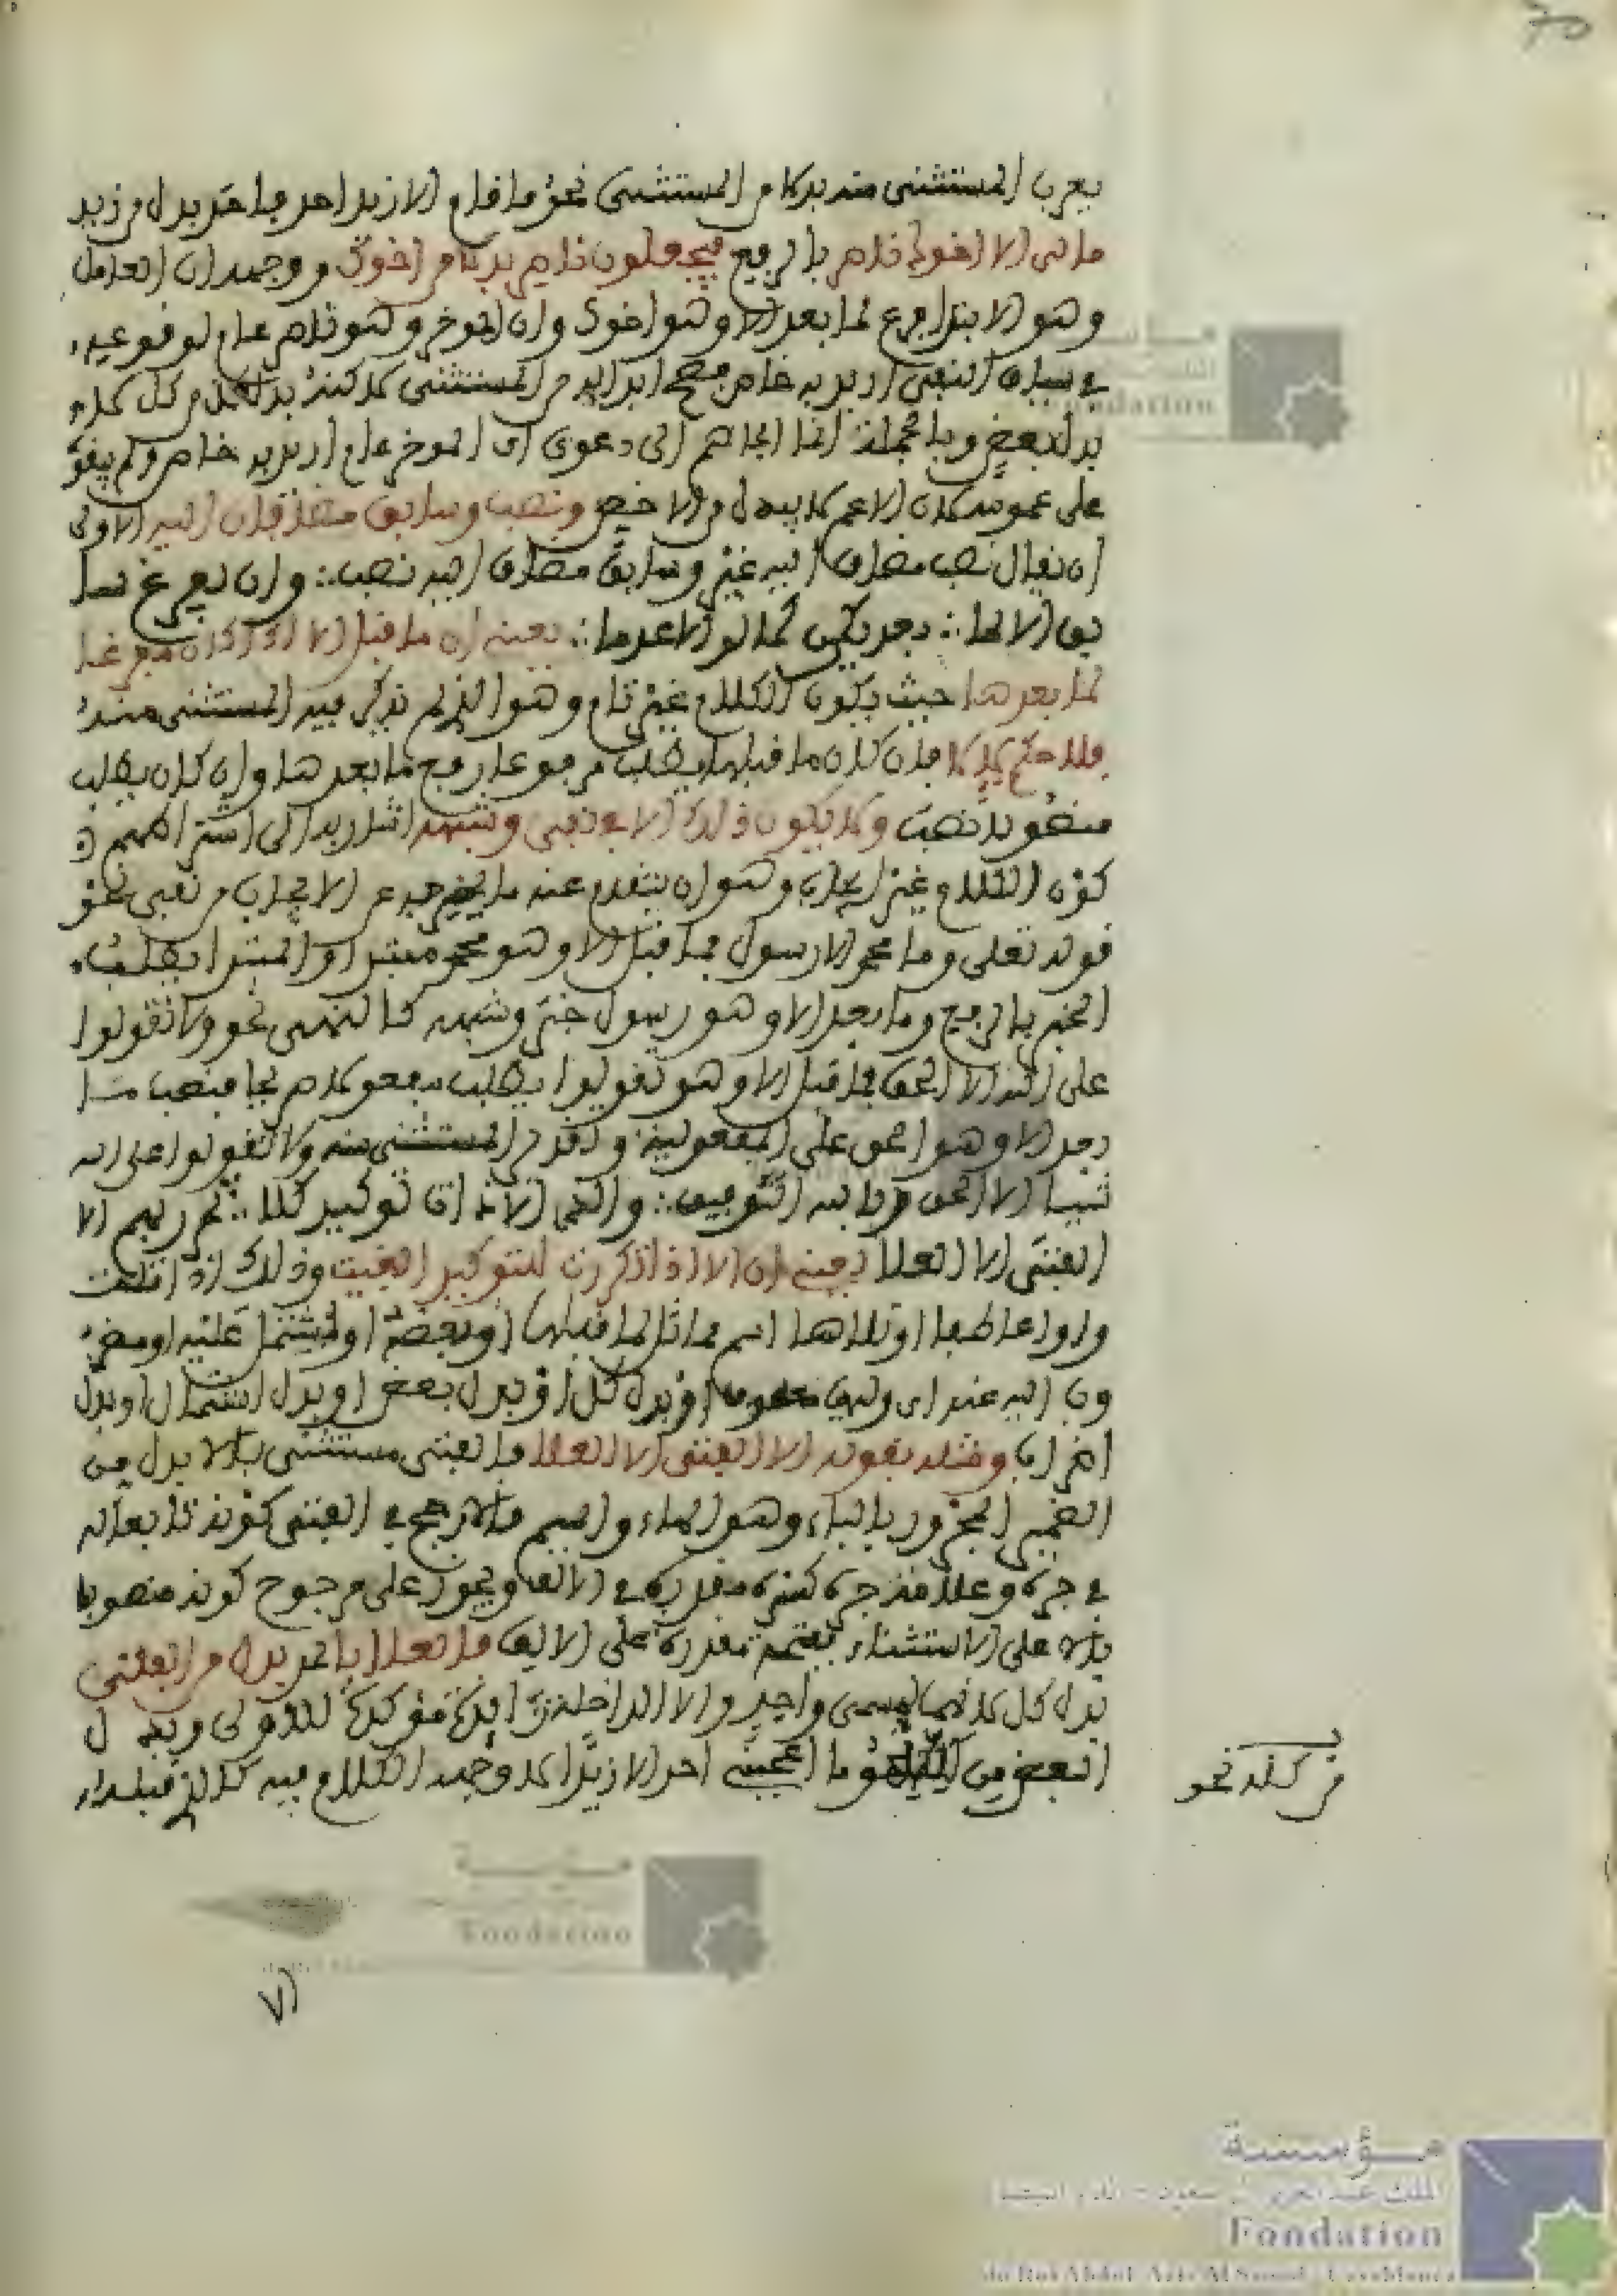 يعرب المستثنى منه بدلا من المستثنى نحو ما قام الا زيدا احد فاحد بدل من زيد
مالى الا اخوك ناصر بالرفع فيجعلون ناصر بدلا من اخوك ووجهه ان العامل
وهو الابتدا فرغ لما بعد الا وهو اخوك وان الموخر وهو ناصر عام لوقوعه
في سياق النفي اريد به خاص فصح ابداله من المستثنى لاكنه بدل كل من كل لا
بدل بعض وبالجملة انما الجاهم الى دعوى ان الموخر عام اريد به خاص ولم يبق
على عمومه لان الاعم لا يبدل من الاخص ونصب وسابق متعلقان اليه الاولى
ان يقال نصب مضاف اليه غير وسابق مضاف اليه نصب ∴ وان يفرغ سا
بق الا لما ∴ بعد يكن كما لو الا عدما ∴ يعني ان ما قبل الا اذا كان مفرغا
لما بعدها حيث يكون الكلام غير تام وهو الذي لم يذكر فيه المستثنى منه
فلا حكم لالا فان كان ما قبلها يطلب مرفوعا رفع ما بعدها وان كان يطلب
منصوبا نصب ولا يكون ذلك الا في نفي وشبهه اشار به الى اشتراطهم
كون الكلام غير ايجاب وهو ان يتقدم عنه ما يخرجه عن الايجاب من نفي نحو
قوله تعلى وما محمد الا رسول فما قبل الا وهو محمد مبتدا والمبتدا يطلب
الخبر بالرفع وما بعد الا وهو رسول خبر وشبهه كالنهي نحو ولا تقولوا
على الله الا الحق فما قبل الا وهو تقولوا يطلب مفعولا صريحا فنصب ما
بعد الا وهو الحق على المفعولية وقدر المستثنى منه ولا تقولوا على الله
شيا الا الحق وبالله التوفيق ∴ والغ الا ذات توكيد كلا ∴ تمرر بهم الا
الفتى الا العلا يعني ان الا اذا كررت للتوكيد الغيت وذلك اذا تلت
واوا عاطفا او تلاها اسم مماثل لما قبلها او بعضه او يشتمل عليه او مضر
وب اليه عنه اى وليها او بدل كل او بدل بعض او بدل اشتمال او بدل
اضراب ومثله بقوله الا الفتى الا العلا فالفتى مستثنى بالا بدل من
الضمير المجرور بالباء وهو الهاء والميم فالارجح في الفتى كونه تابعا له
في جره وعلامة جره كسرة مقدرة في الالف ويجوز على مرجوح كونه منصوبا
بالا على الاستثناء بفتحة مقدرة على الالف فالعلا بالجر بدل من الفتى
بدل كل لانهما لمسمى واحد والا الداخلة زائدة مؤكدة للاولى وبدل
البعض من ما اعجبني احد الا زيدا لا وجهه الكلام فيه كالذي قبله
كله نحو
٧١
مؤسسة
الملك عبد العزيز آل سعود - الدار البيضاء
Fondation
du Roi Abdul-Aziz Al Saoud - Casablanca